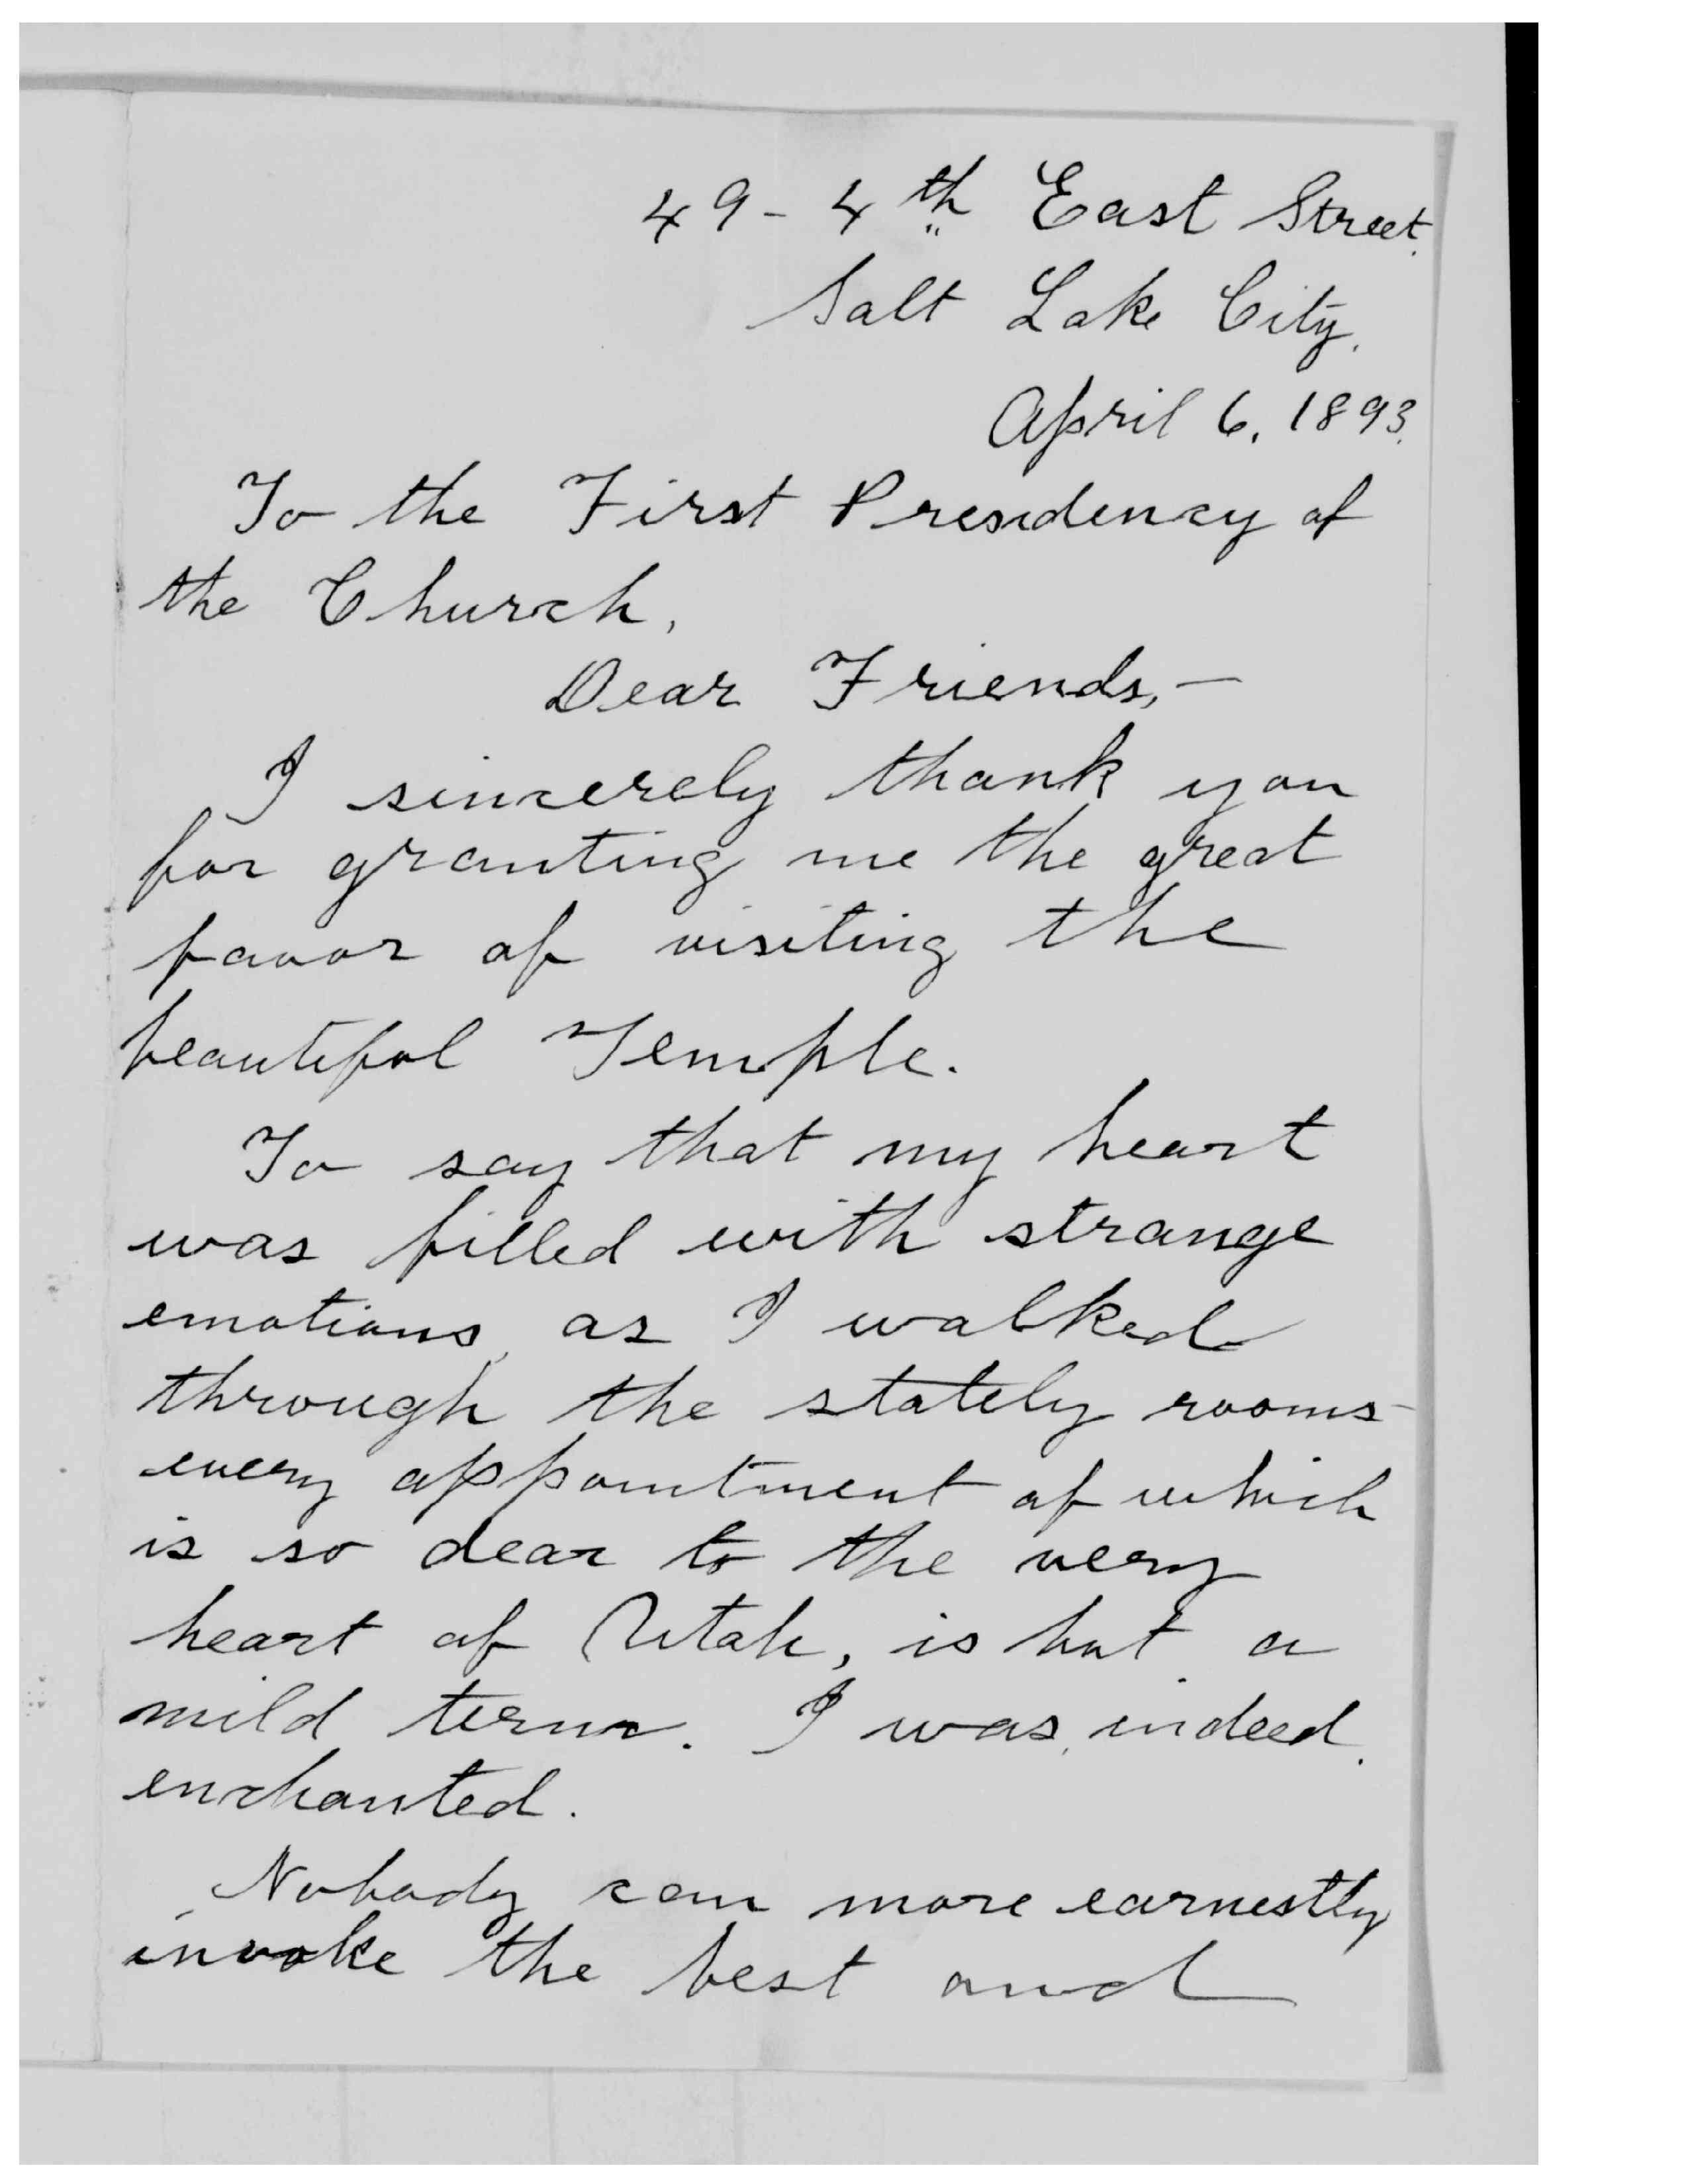 49 - 4th East Street.
Salt Lake City.
April 6, 1893.
To the First Presidency of
the Church,
Dear Friends,—
I sincerely thank you
for granting me the great
favor of visiting the
beautiful Temple.
To say that my heart
was filled with strange
emotions, as I walked
through the stately rooms
every appointment of which
is so dear to the very
heart of Utah, is but a
mild term. I was, indeed,
enchanted.
Nobody can more earnestly
invoke the best and